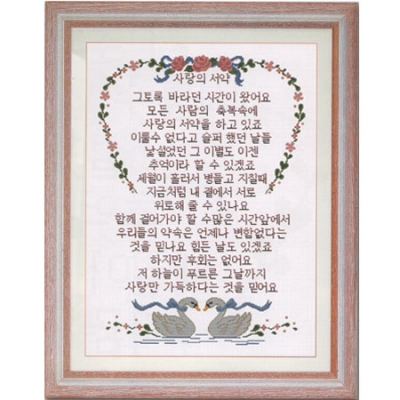 사랑의 서약
그토록 바라던 시간이 왔어요
모든 사람의 축복속에
사랑의 서약을 하고 있죠
이룰수 없다고 슬퍼 했던 날들
낯설었던 그 이별도 이젠
추억이라 할 수 있겠죠
세월이 흘러서 병들고 지칠때
지금처럼 내 곁에서 서로
위로해 줄 수 있나요
함께 걸어가야 할 수많은 시간앞에서
우리들의 약속은 언제나 변함없다는
것을 믿나요 힘든 날도 있겠죠
하지만 후회는 없어요
저 하늘이 푸르른 그날까지
사랑만 가득하다는 것을 믿어요